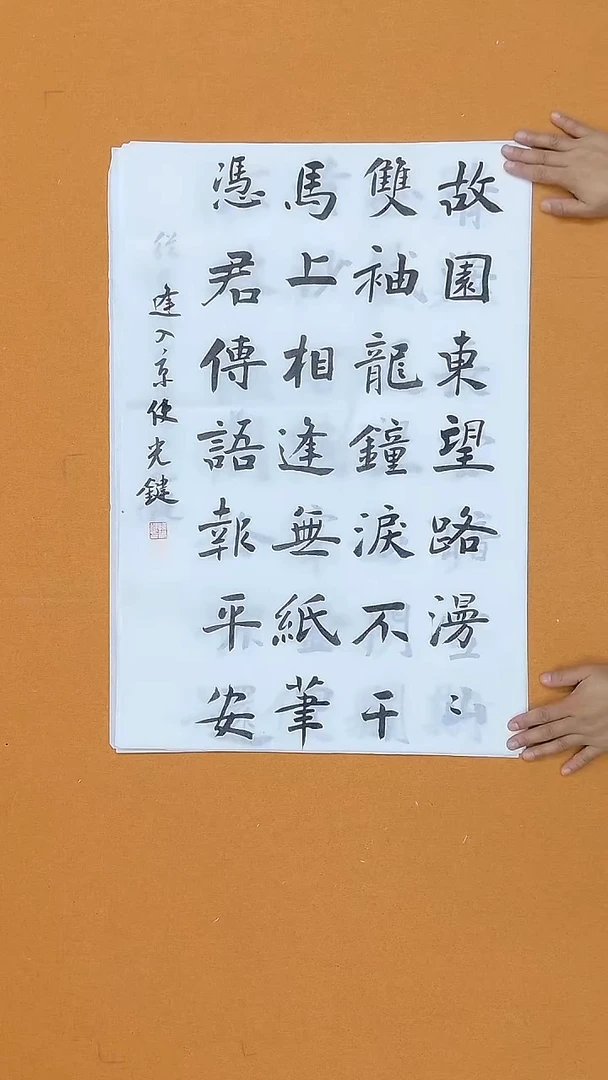 故園東望路漫〻
雙袖龍鐘淚不干
馬上相逢無紙筆
憑君傳語報平安
逢入京使光鍵